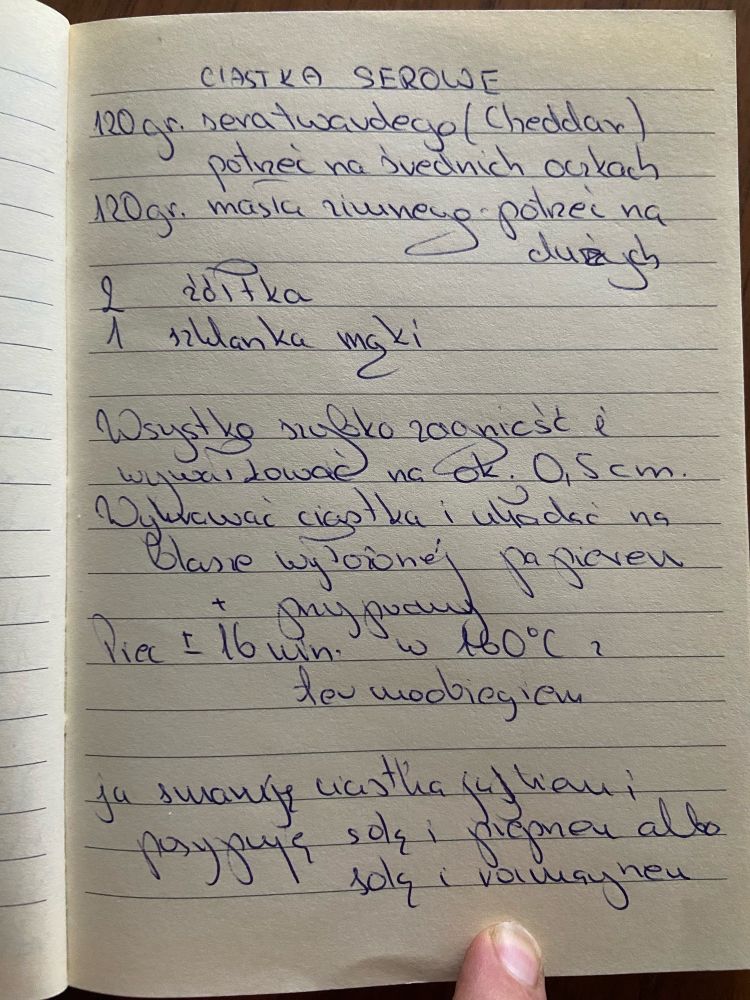 CIASTKA SEROWE
120gr. sera twardego (Cheddar)
potrzeć na średnich oczkach
120gr. masła zimnego - potrzeć na
dużych
2 żółtka
1 szklanka mąki
Wszystko szybko zagnieść i
wywałkować na ok. 0,5 cm.
Wykrawać ciastka i układać na
blasze wyłożonej papierem
+ przyprawy
Piec ± 16 min. w 160°C z
termoobiegiem
ja smaruję ciastka jajkiem i
posypuję solą i pieprzem albo
solą i rozmarynem